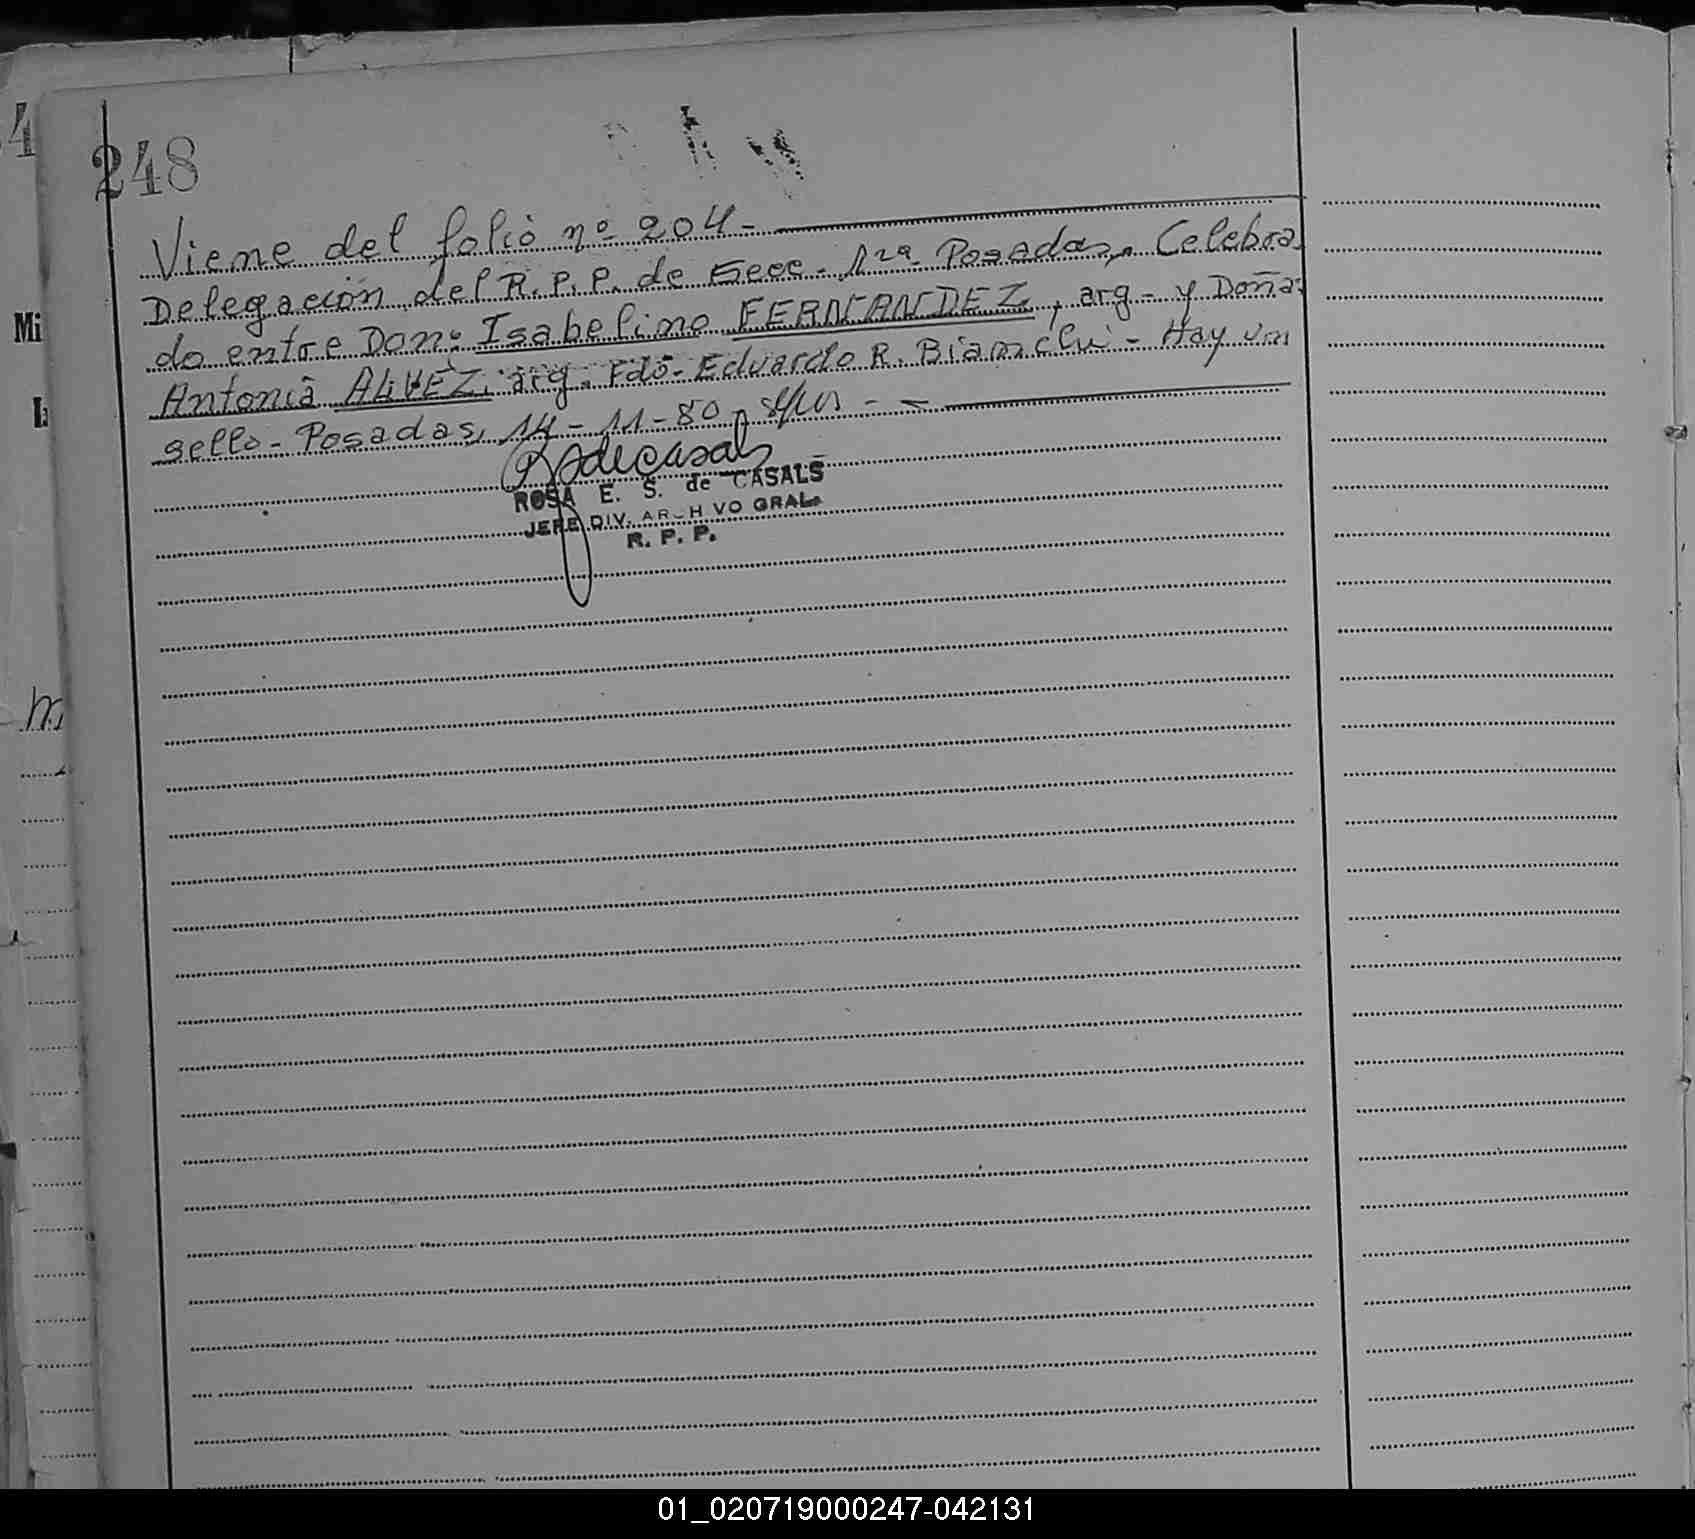 248
Viene del folio nº 204-
Delegación del R.P.P. de Secc. 1ra. Posadas, Celebra
do entre Don: Isabelino FERNANDEZ, arg- y Doña:
Antonia ALVEZ, arg. Fdo- Eduardo R. Bianchi - Hay un
sello - Posadas, 14-11-80-
ROSA E. S. de CASALS
JEFE DIV. ARCHIVO GRAL.
R. P. P.
4
Mi
01_020719000247-042131